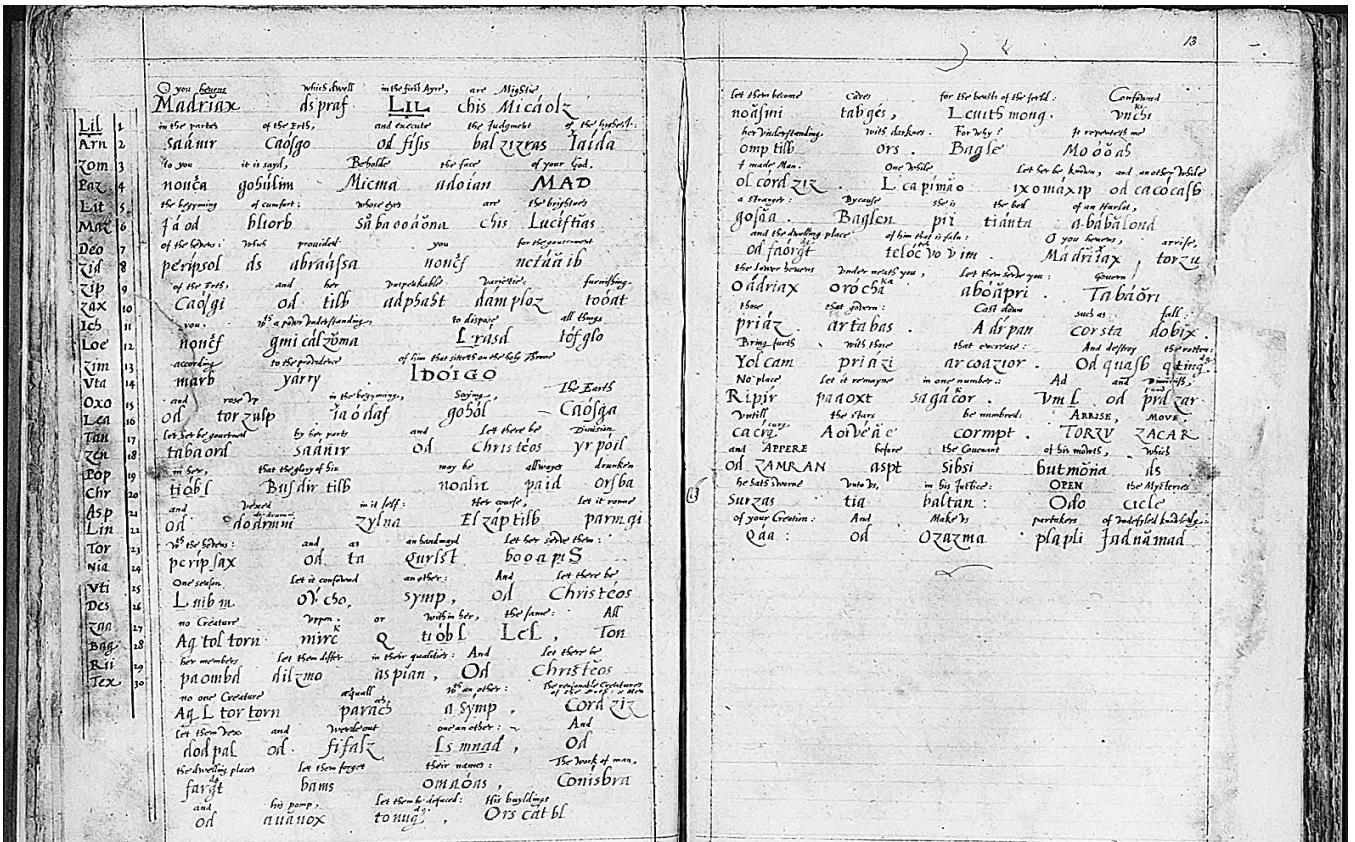 O you hevens which dwell in the first Ayre, are Mightie
Madriax ds praf LIL chis Micaolz
in the partes of the Erth, and execute the Judgment of the highest:
saánir Caósgo od fisis bal zizras Iaida
to you it is sayd, Beholde the face of your God,
nonca gohúlim Micma adoian MAD
the begynning of cumfort: whose eyes are the brightnes
Iáod bliorb sabaooáona chis Luciftias
of the hevens: which provided you for the gouernment
peripsol ds abraássa noncf netááib
of the Erth, and her unspeakable varietie: furnishing
Caósgi od tilb adphaht dámploz toóat
you wth a powr understanding, to dispose all things
noncf gmicalzóma Lrasd tofglo
according to the providence of him that sitteth on the holy Throne
marb yarry IDOIGO
and rose up in the begynning, Saying, The Earth
od torzulp iáodaf gohól Caósga
let her be gouerned by her parts and Let there be Division
tabaord saánir od Christéos yrpóil
in her, that the glory of hir may be allwayes drunken
tióbl Busdir tilb noaln paid orsba
and vexed in it self: Her course, let it ronne
od dodrmni zylna Elzáptilb parmgi
wth the hevens: and as an handmayd Let her serve them:
peripsax od ta qurlst booapiS
One season Let it confownd an other: And Let there be
Lnibm oucho, symp, od Christéos
no Creature uppon, or within her, the same: All
Ag toltorn mirc Q tióbl Lel, Ton
her members let them differ in their qualities: And Let there be
paombd dilzmo aspian, Od Christéos
no one Creature æquall wth an other: the reasonable Creatures of the Erth, or Men
Ag L tor torn parach a symp, Cordziz
let them vex and weede out one an other: And
dodpal od fifalz Ls mnad, Od
the dwelling places let them forget their names: The work of man,
fargt bams omaóas, Conisbra
and his pomp, Let them be defaced: His buyldings
od auáuox tonug, Orscátbl
Lil 1
Arn 2
Zom 3
Paz 4
Lit 5
Maz 6
Deo 7
Zid 8
Zip 9
Zax 10
Ich 11
Loe 12
Zim 13
Vta 14
Oxo 15
Lea 16
Tan 17
Zen 18
Pop 19
Chr 20
Asp 21
Lin 22
Tor 23
Nia 24
Vti 25
Des 26
Zaa 27
Bag 28
Rii 29
Tex 30
13
let them become Caves for the beasts of the feeld: Confownd
noásmi tabges, Levithmong. unchi
her understanding with darknes. For why? It repenteth me
omptilb ors. Bagle Moóóah
I made Man. One while Let her be known, and an other while
olcórdziz. L capimao ixomaxip od cacócasb
a stranger: Bycause she is the bed of an Harlot,
gosáa. Baglen pii tiánta abábálond
and the dwelling place of him that is faln: O you hevens, arrise,
od faórgt telocvovim. Madriiax, torzu
the lower hevens under neath you, Let them serve you: Govern
oádriax orócha abóápri. Tabáóri
those that govern: Cast down such as fall:
priáz artabas. Adrpan corsta dobix.
Bring furth with those that encrease: And destroy the rotten:
Yolcam priázi arcoazior. Od quasb qting.
No place let it remayne in one number: Ad and Diminish,
Ripir paaoxt sagácor. VmL od prdzar
Untill the stars be numbred: ARRISE, MOVE,
cacrg Aoivéáe cormpt. TORZV ZACAR
and APPERE before the Covenant of his mowth, which
od ZAMRAN aspt sibsi butmona ds
he hath sworne unto us, in his Justice: OPEN the Mysteries
Surzas tia baltan: Odo cicle
of your Creation: And Make us partakers of undefyled knowledg:
Qaa: od Ozazma plapli Iadnámad